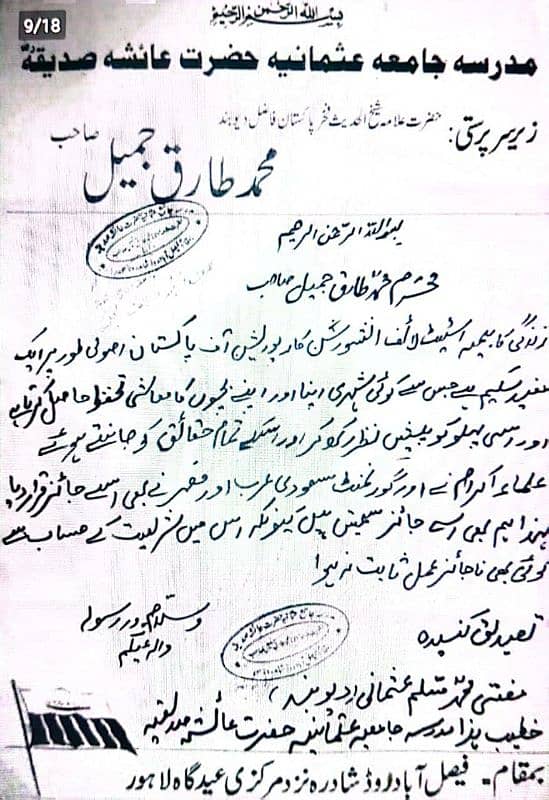 9/18
بسم اللہ الرحمن الرحیم
مدرسہ جامعہ عثمانیہ حضرت عائشہ صدیقہؓ
زیر سرپرستی: حضرت علامہ شیخ الحدیث فخر پاکستان فاضل دیوبند
محمد طارق جمیل صاحب
بسم اللہ الرحمن الرحیم
محترم محمد طارق جمیل صاحب
زندگی کا بیمہ اسٹیٹ لائف انشورنس کارپوریشن آف پاکستان اصولی طور پر ایک
مفید سکیم ہے جس سے کوئی شہری اپنا اور اپنے بچوں کا معاشی تحفظ حاصل کرتا ہے
اور اسی پہلو کو پیش نظر رکھ کر اور اسکے تمام حقائق کو جانتے ہوئے
علماء اکرام نے اور گورنمنٹ سعودی عرب اور مصر نے بھی اسے جائز قرار دیا
لہذا ہم بھی اسے جائز سمجھتے ہیں کیونکہ اس میں شریعت کے حساب سے
کوئی بھی ناجائز عمل ثابت نہ ہوا
تصدیق کنندہ
مفتی محمد مسلم عثمانی
خطیب ہذا مدرسہ جامعہ عثمانیہ حضرت عائشہ صدیقہ
بمقام۔ فیصل آباد روڈ شاہدرہ نزد مرکزی عید گاہ لاہور